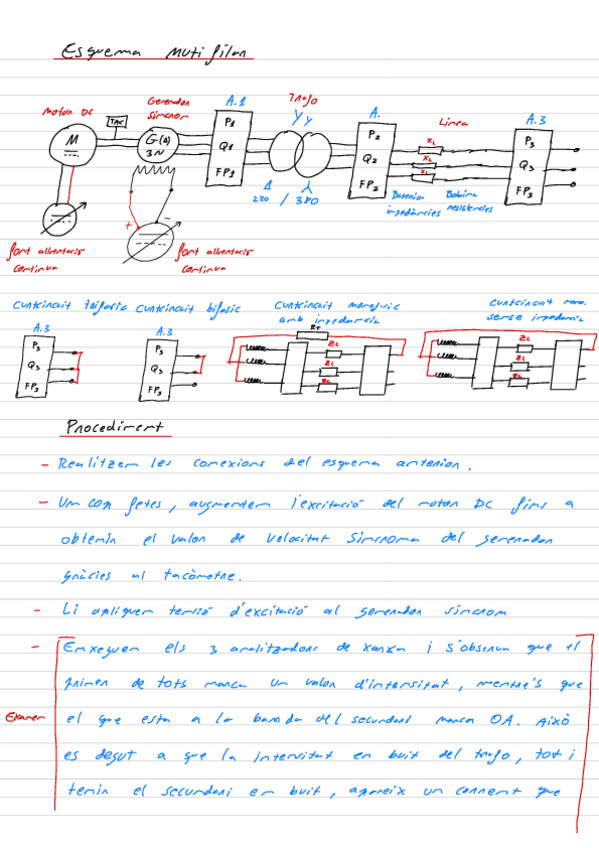 Esquema Mutifilan
A.1
Trafo
Generador
síncron
Yy
A.
Motor DC
TAC
Línea
A.3
P1
Q1
FP1
P2
Q2
FP2
P3
Q3
FP3
M
G(Δ)
3N
XL
XL
XL
Δ
220 / 380
Bateria
impedàncies
Bobina
resistències
+
font alimentació
continua
font alimentació
continua
Curtcircuit trifasic
Curtcircuit bifasic
Curtcircuit monofasic
amb impedancia
Curtcircuit mono.
sense impedancia
A.3
P3
Q3
FP3
A.3
P3
Q3
FP3
RT
ZL
ZL
ZL
ZL
ZL
ZL
Procediment
- Realitzem les conexions del esquema anterior.
- Un cop fetes, augmentem l'excitació del motor DC fins a
obtenir el valor de velocitat síncrona del generador
gràcies al tacòmetre.
- Li apliquem tensió d'excitació al generador síncron
- Enxeguem els 3 analitzadors de xarxa i s'observa que el
primer de tots marca un valor d'intensitat, mentre's que
Examen
el que esta a la banda del secundari marca 0A. Això
es degut a que la intensitat en buit del trafo, tot i
tenir el secundari en buit, apareix un corrent que